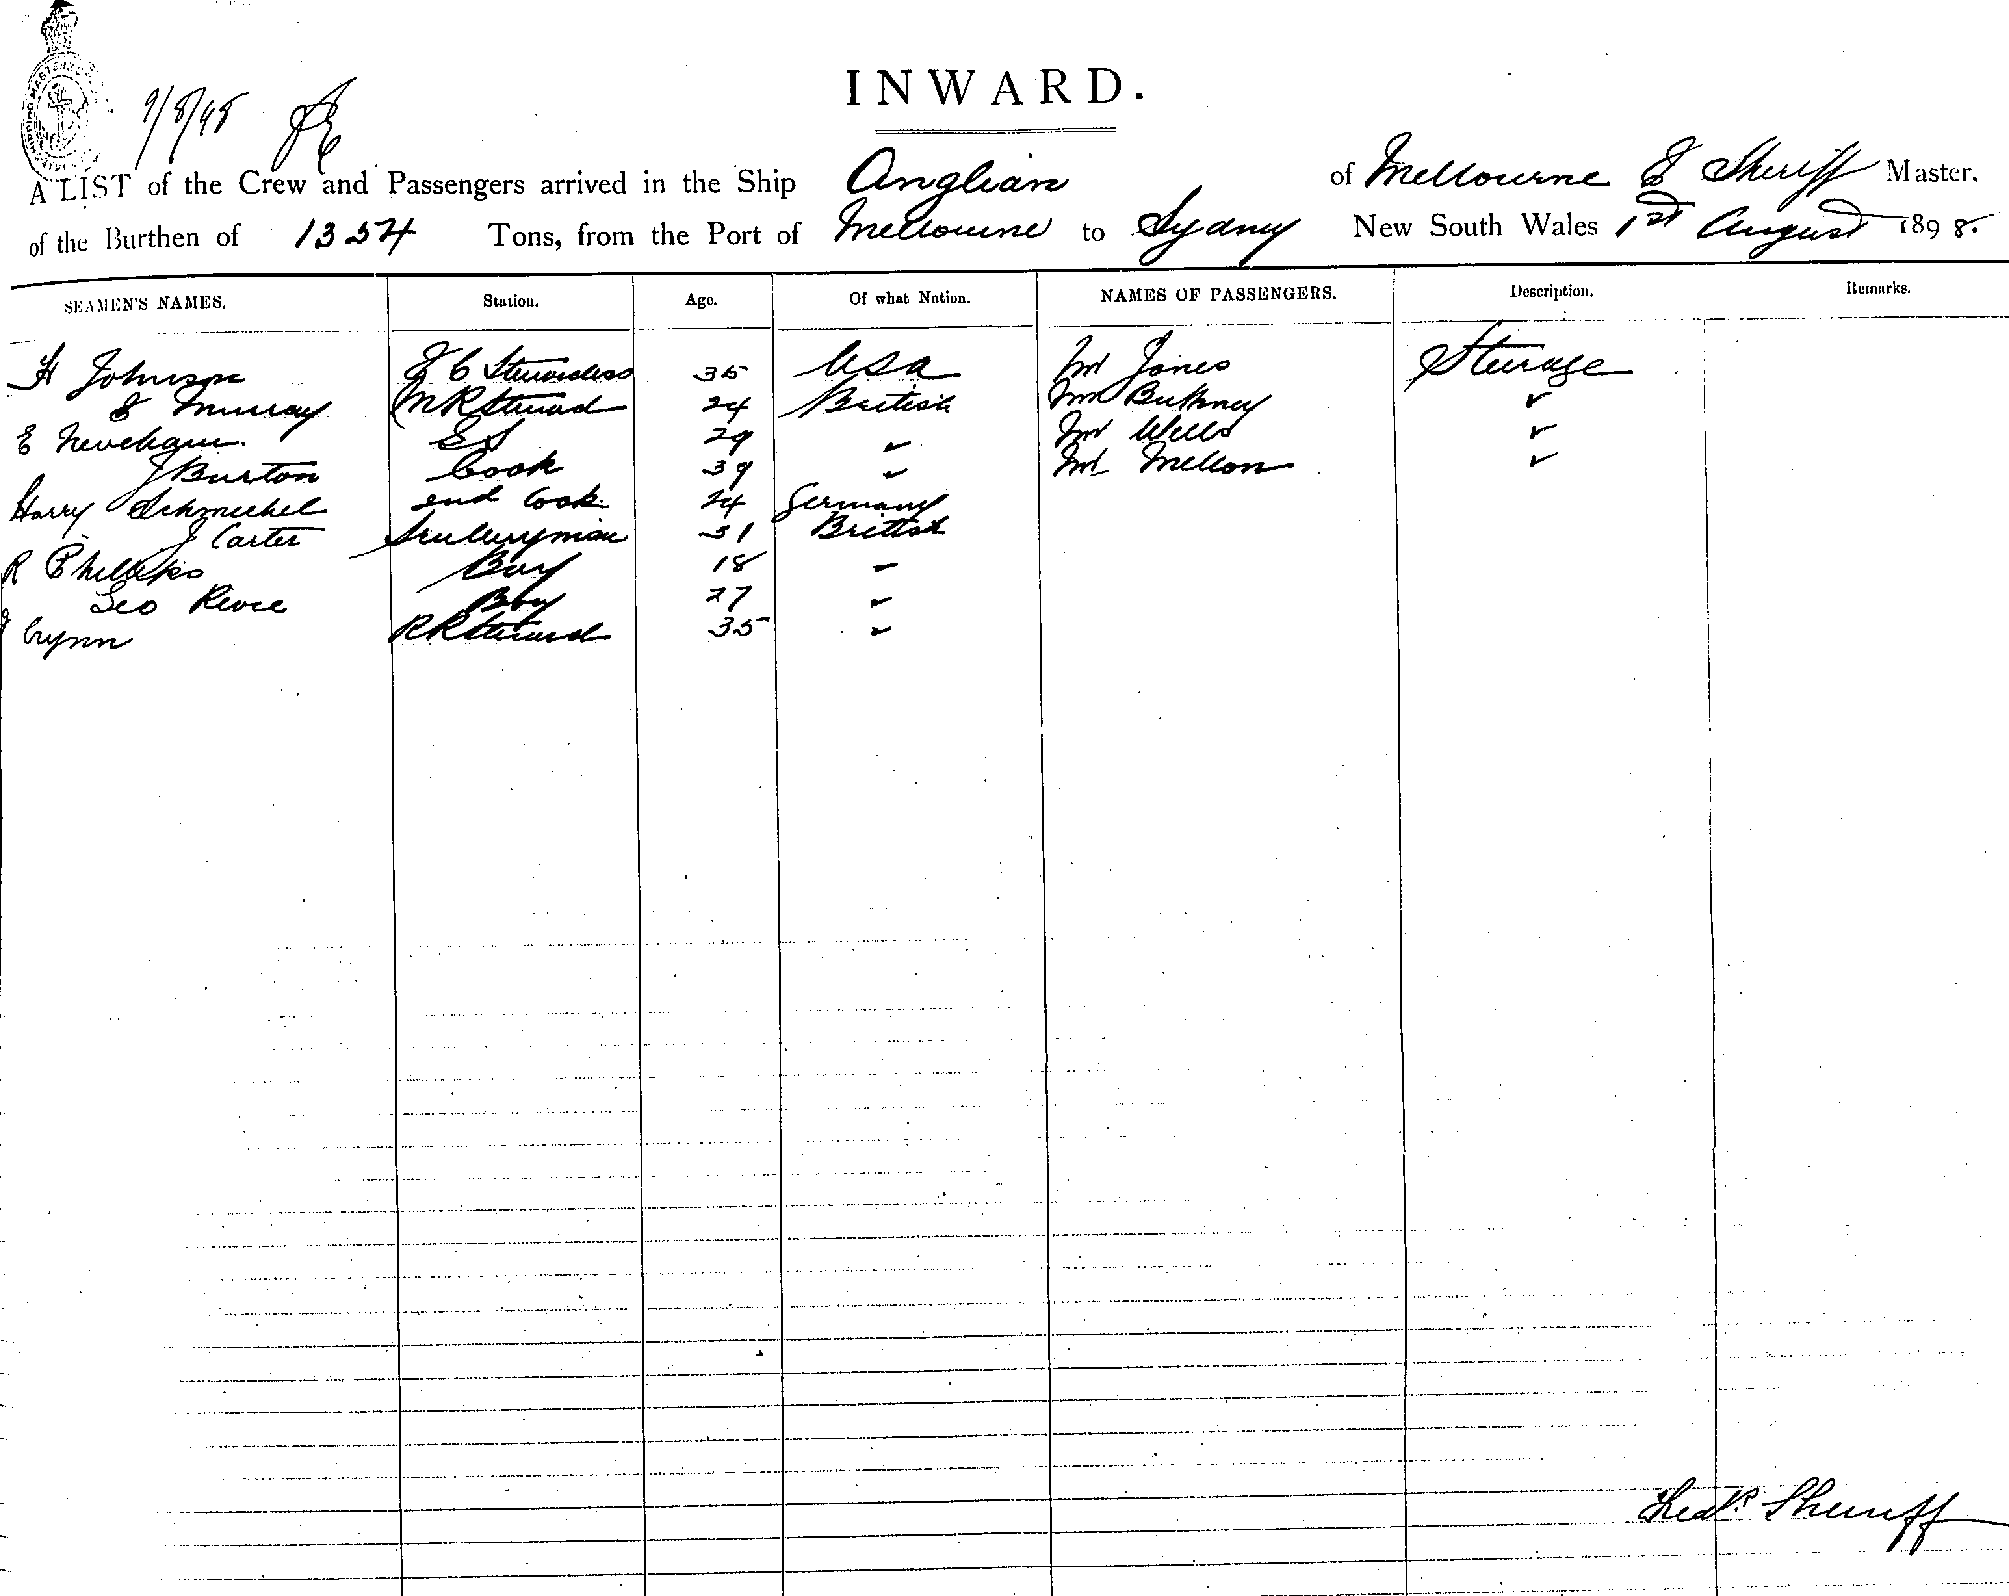 INWARD.
1/8/98
A LIST of the Crew and Passengers arrived in the Ship Anglian of Melbourne F Sheriff Master.
of the Burthen of 1354 Tons, from the Port of Melbourne to Sydney New South Wales 1st August 1898.
SEAMEN'S NAMES. Station. Age. Of what Nation. NAMES OF PASSENGERS. Description. Remarks.
H Johnson F C Stewardess 35 USA Mr Jones Steerage
F Murray M R Steward 24 British Mr Buthney ✓
E Newcham ES 29 ✓ Mr Wells ✓
J Burton Cook 39 ✓ Mr Mellon ✓
Harry Schmeckel 2nd Cook 24 Germany
J Carter Sculleryman 31 British
R Phillips Boy 18 ✓
Geo Revie Boy 27 ✓
Crynn R R Steward 35 ✓
Fredk Sheriff